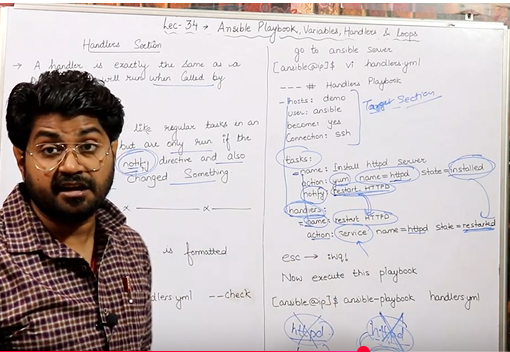 Lec-34 → Ansible Playbook, Variables, Handlers & Loops
Handlers Section
→ A handler is exactly the same as a
will run when called by
like regular tasks in an
but are only run if the
notify directive and also
Changed Something
is formatted
handlers.yml --check
go to ansible server
[ansible@ip]$ vi handlers.yml
--- # Handlers Playbook
- hosts: demo
user: ansible
become: yes
Connection: ssh
Target Section
tasks:
- name: Install httpd server
action: yum name=httpd state=installed
notify: restart HTTPD
handlers:
- name: restart HTTPD
action: service name=httpd state=restarted
esc → :wq!
Now execute this playbook
[ansible@ip]$ ansible-playbook handlers.yml
httpd httpd